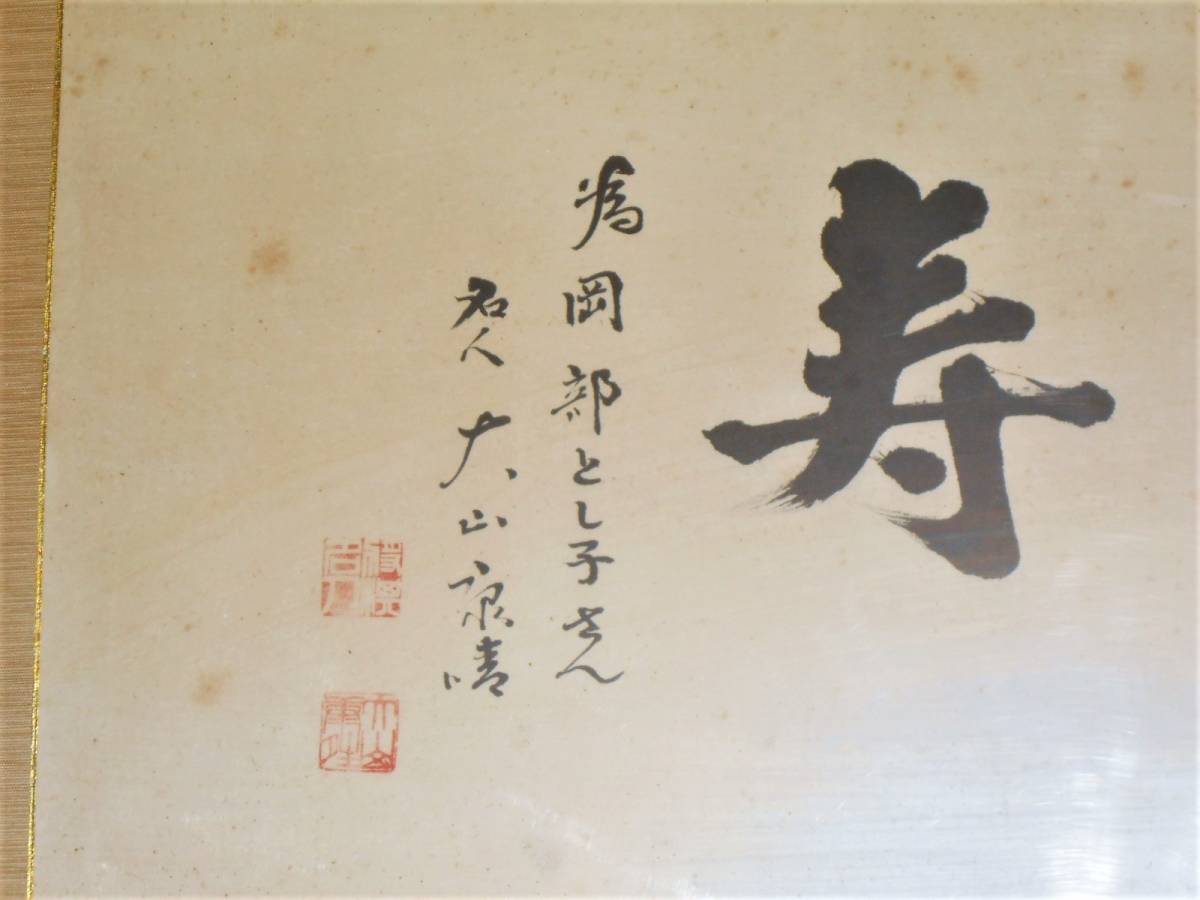 寿
為岡部とし子さん
名人 大山康晴